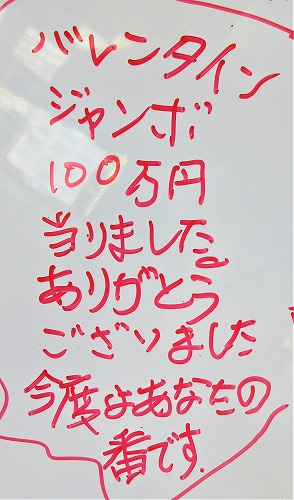 バレンタイン
ジャンボ
100万円
当りました。
ありがとう
ございました
今度はあなたの
番です.